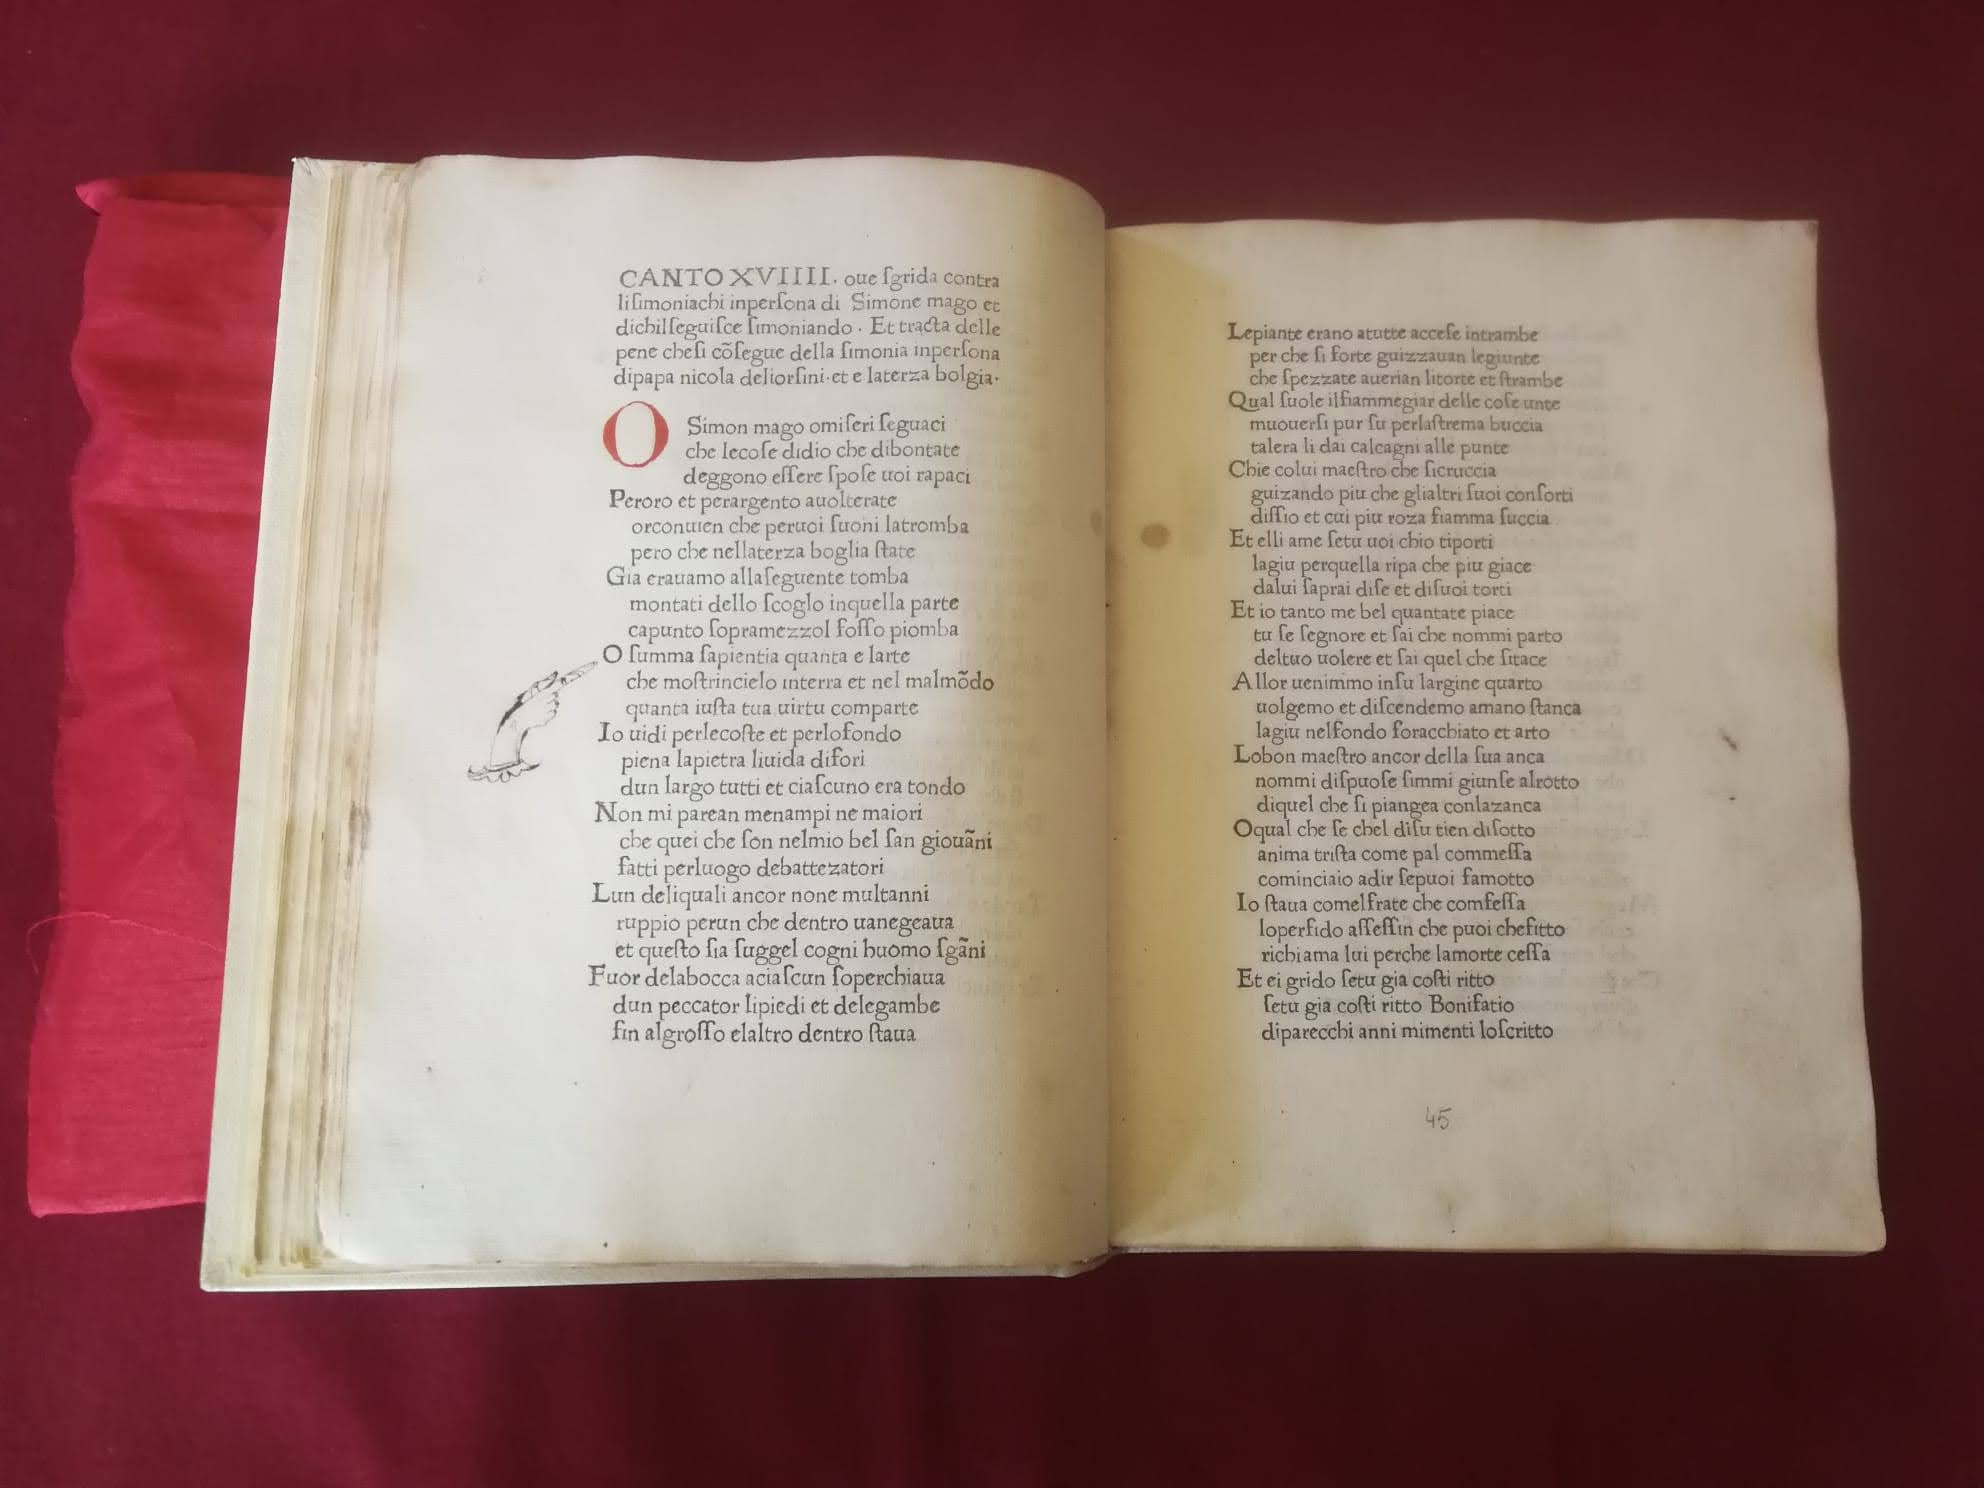 CANTO XVIIII. oue ſgrida contra
liſimoniachi inperſona di Simone mago et
dichilſeguiſce ſimoniando · Et tracta delle
pene cheſi cõſegue della ſimonia inperſona
dipapa nicola deliorſini·et e laterza bolgia·
O Simon mago omiſeri ſeguaci
che lecoſe didio che dibontate
deggono eſſere ſpoſe uoi rapaci
Peroro et perargento auolterate
orconuien che peruoi ſuoni latromba
pero che nellaterza boglia ſtate
Gia erauamo allaſeguente tomba
montati dello ſcoglo inquella parte
capunto ſopramezzol foſſo piomba
O ſumma ſapientia quanta e larte
che moſtrincielo interra et nel malmõdo
quanta iuſta tua uirtu comparte
Io uidi perlecoſte et perlofondo
piena lapietra liuida difori
dun largo tutti et ciaſcuno era tondo
Non mi parean menampi ne maiori
che quei che ſon nelmio bel ſan giouãni
fatti perluogo debattezatori
Lun deliquali ancor none multanni
ruppio perun che dentro uanegeaua
et queſto ſia ſuggel cogni huomo ſgãni
Fuor delabocca aciaſcun ſoperchiaua
dun peccator lipiedi et delegambe
fin algroſſo elaltro dentro ſtaua
Lepiante erano atutte acceſe intrambe
per che ſi forte guizzauan legiunte
che ſpezzate auerian litorte et ſtrambe
Qual ſuole ilfiammegiar delle coſe unte
muouerſi pur ſu perlaſtrema buccia
talera li dai calcagni alle punte
Chie colui maeſtro che ſicruccia
guizando piu che glialtri ſuoi conſorti
diſſio et cui piu roza fiamma ſuccia
Et elli ame ſetu uoi chio tiporti
lagiu perquella ripa che piu giace
dalui ſaprai diſe et diſuoi torti
Et io tanto me bel quantate piace
tu ſe ſegnore et ſai che nommi parto
deltuo uolere et ſai quel che ſitace
Allor uenimmo inſu largine quarto
uolgemo et diſcendemo amano ſtanca
lagiu nelfondo foracchiato et arto
Lobon maeſtro ancor della ſua anca
nommi diſpuoſe ſimmi giunſe alrotto
diquel che ſi piangea conlazanca
Oqual che ſe chel diſu tien diſotto
anima triſta come pal commeſſa
cominciaio adir ſepuoi famotto
Io ſtaua comelfrate che comfeſſa
loperfido aſſeſſin che puoi chefitto
richiama lui perche lamorte ceſſa
Et ei grido ſetu gia coſti ritto
ſetu gia coſti ritto Bonifatio
diparecchi anni mimenti loſcritto
45